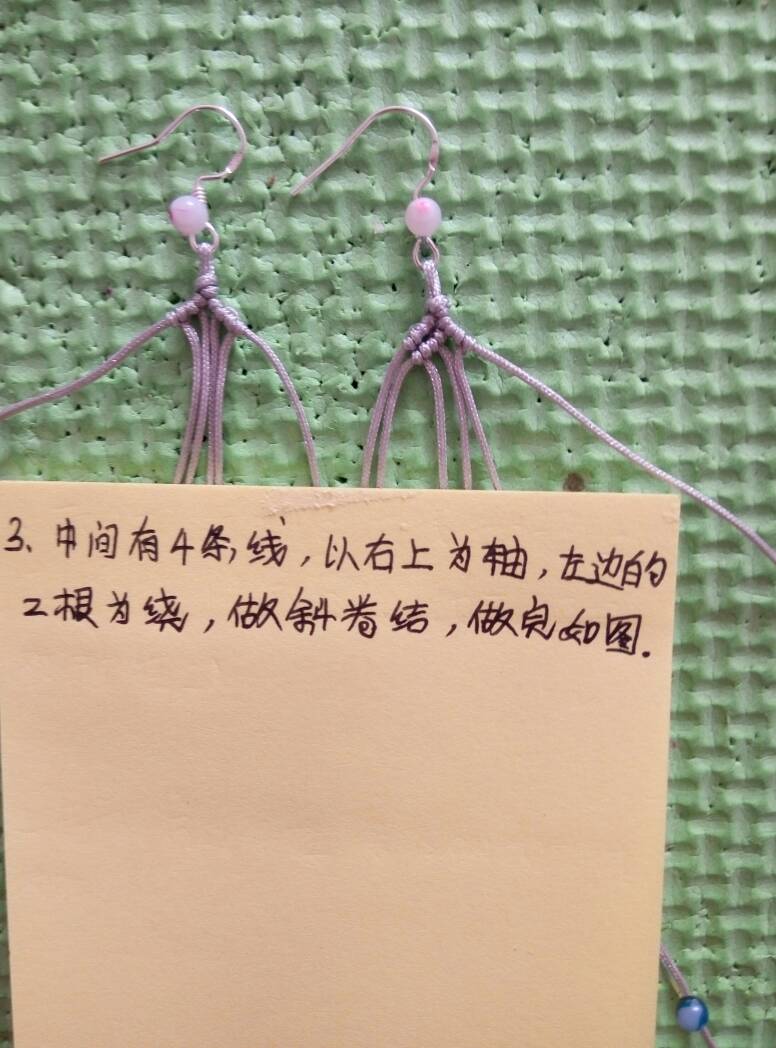 3、中间有4条线，以右上为轴，左边的
2根为绕，做斜卷结，做完如图.